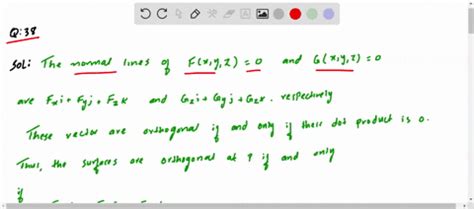 Q:38
Sol: The normal lines of F(x,y,z) = 0 and G(x,y,z) = 0
are Fxi + Fyj + Fzk and Gzi + Gyj + Gzk. respectively
These vector are orthogonal if and only if their dot product is 0.
Thus, the surfaces are orthogonal at P if and only
if